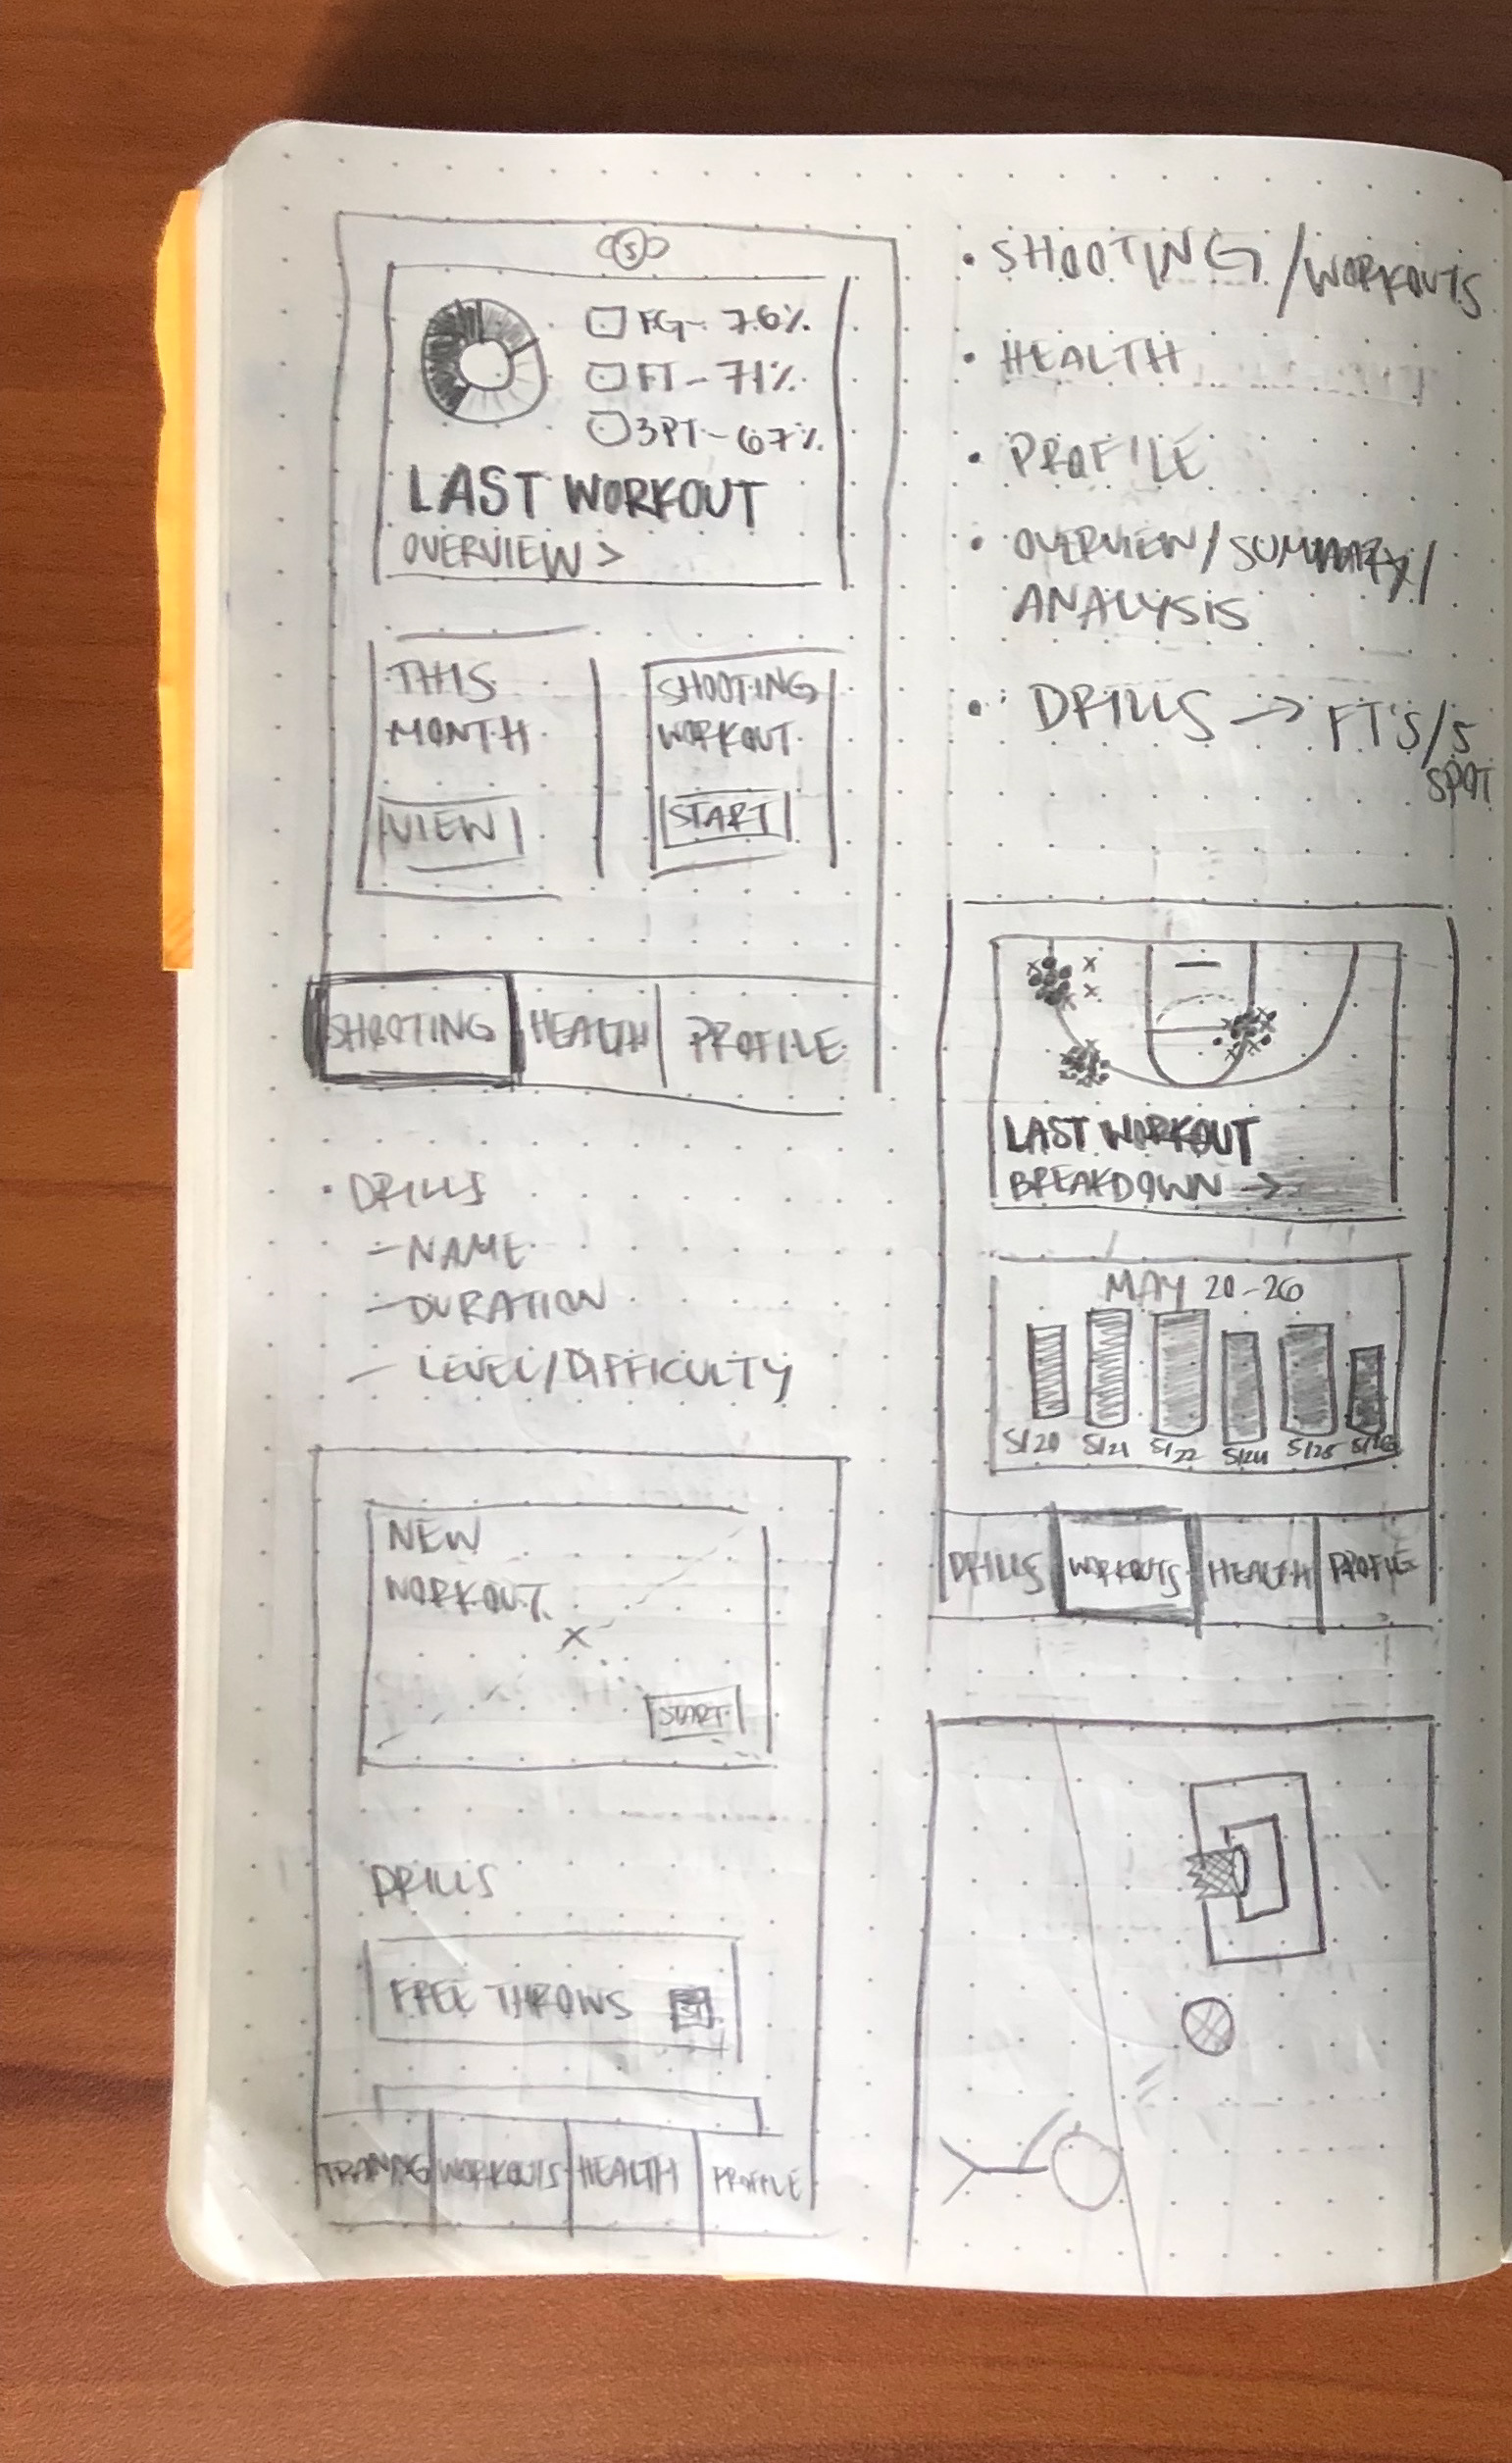 S
FG - 76%
FT - 71%
3PT - 67%
LAST WORKOUT
OVERVIEW >
THIS
MONTH
VIEW
SHOOTING
WORKOUT
START
SHOOTING
HEALTH
PROFILE
• DRILLS
- NAME
- DURATION
- LEVEL/DIFFICULTY
NEW
WORKOUT
START
DRILLS
FREE THROWS
WORKOUTS
HEALTH
PROFILE
• SHOOTING/WORKOUTS
• HEALTH
• PROFILE
• OVERVIEW/SUMMARY/
ANALYSIS
• DRILLS → FT'S/5
SPOT
LAST WORKOUT
BREAKDOWN →
MAY 20-26
5/20 5/21 5/22 5/24 5/25 5/26
DRILLS
WORKOUTS
HEALTH
PROFILE